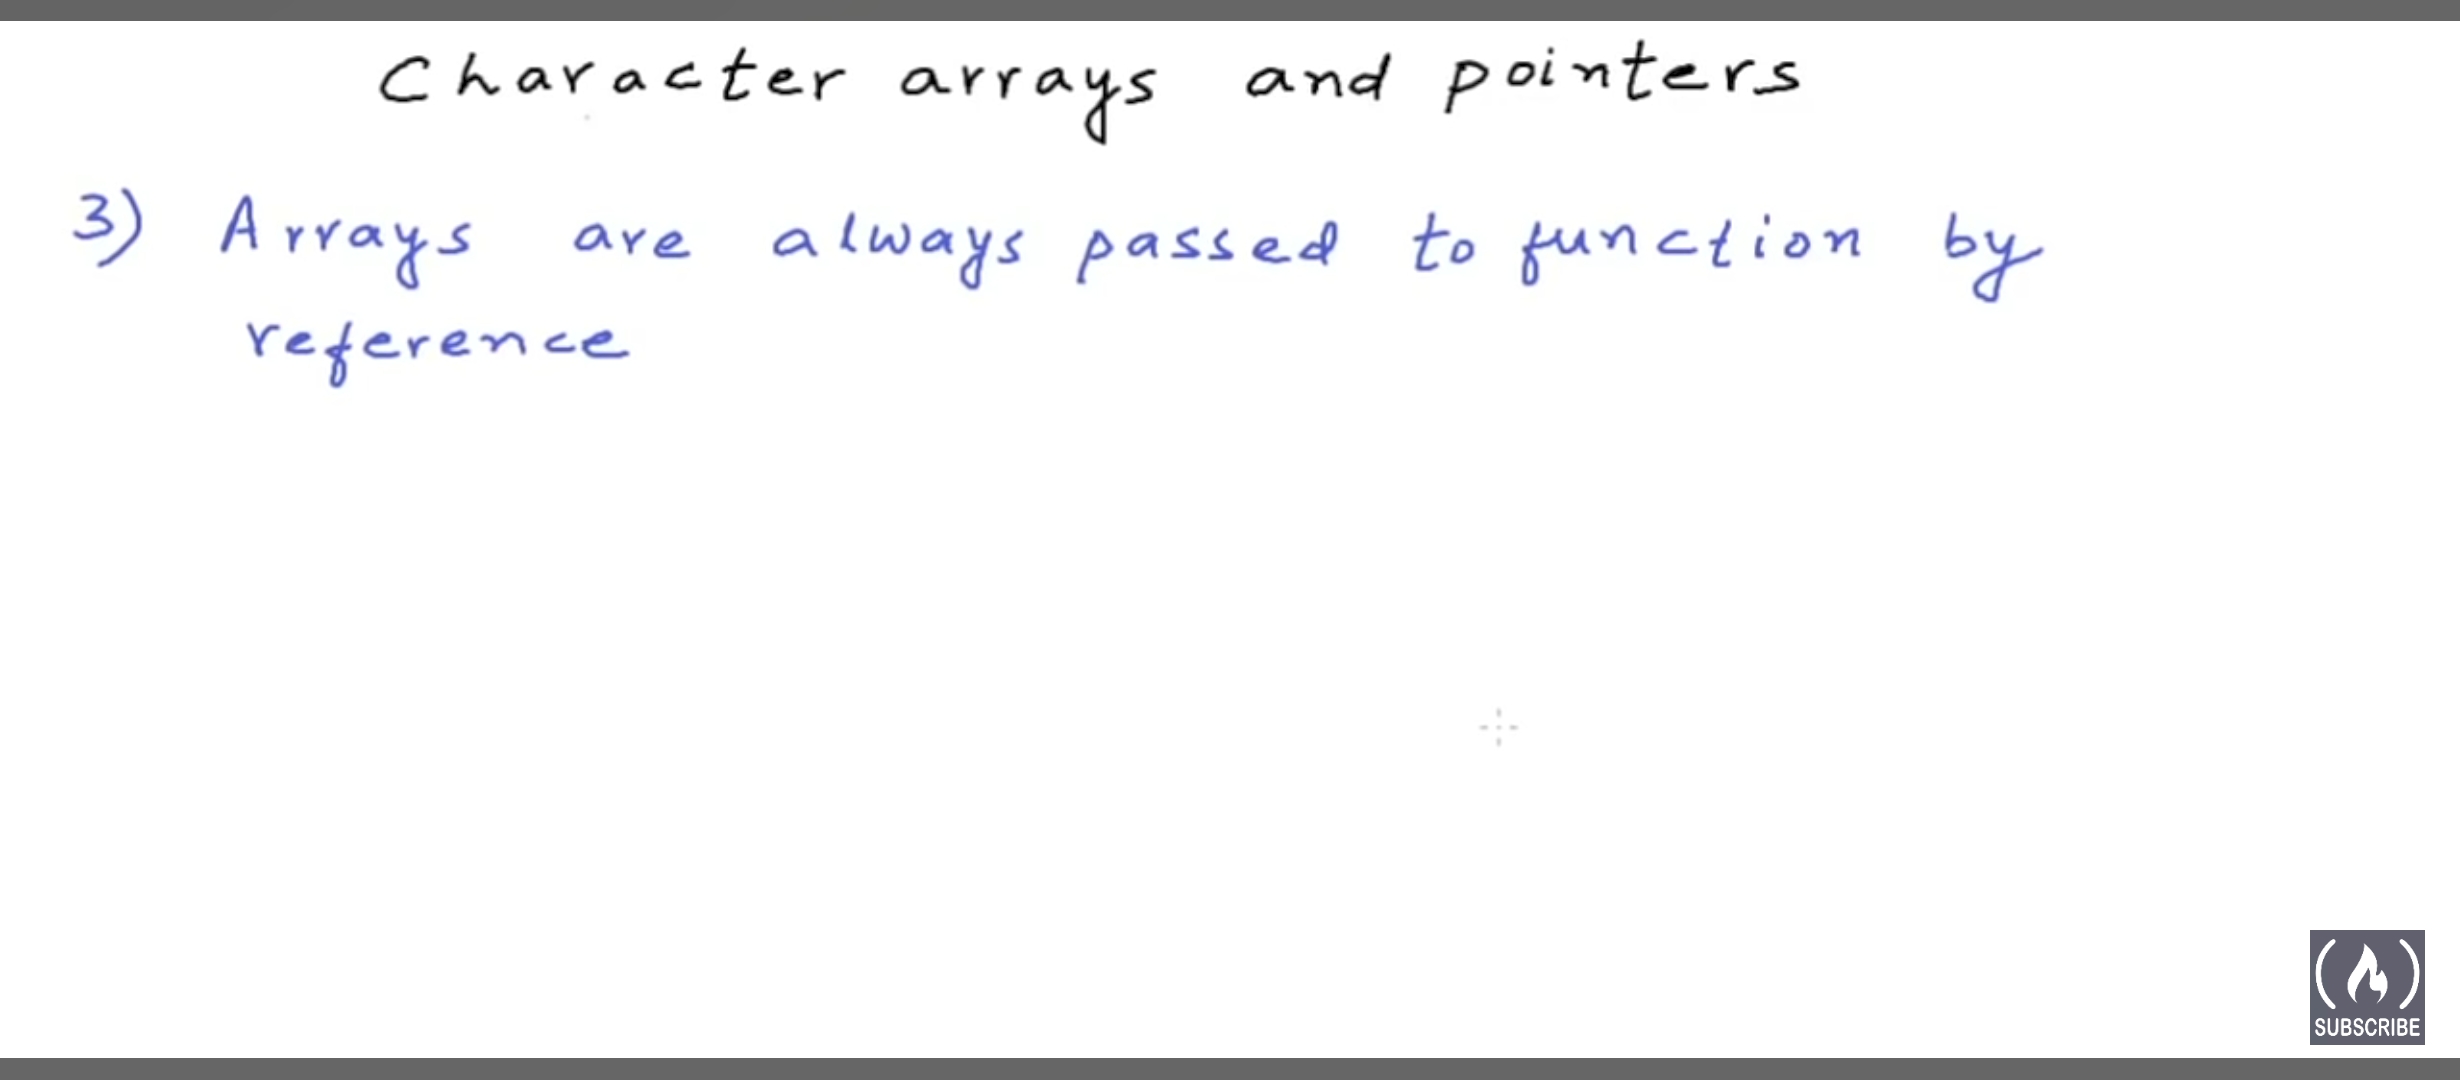 Character arrays and pointers
3) Arrays are always passed to function by
reference
SUBSCRIBE